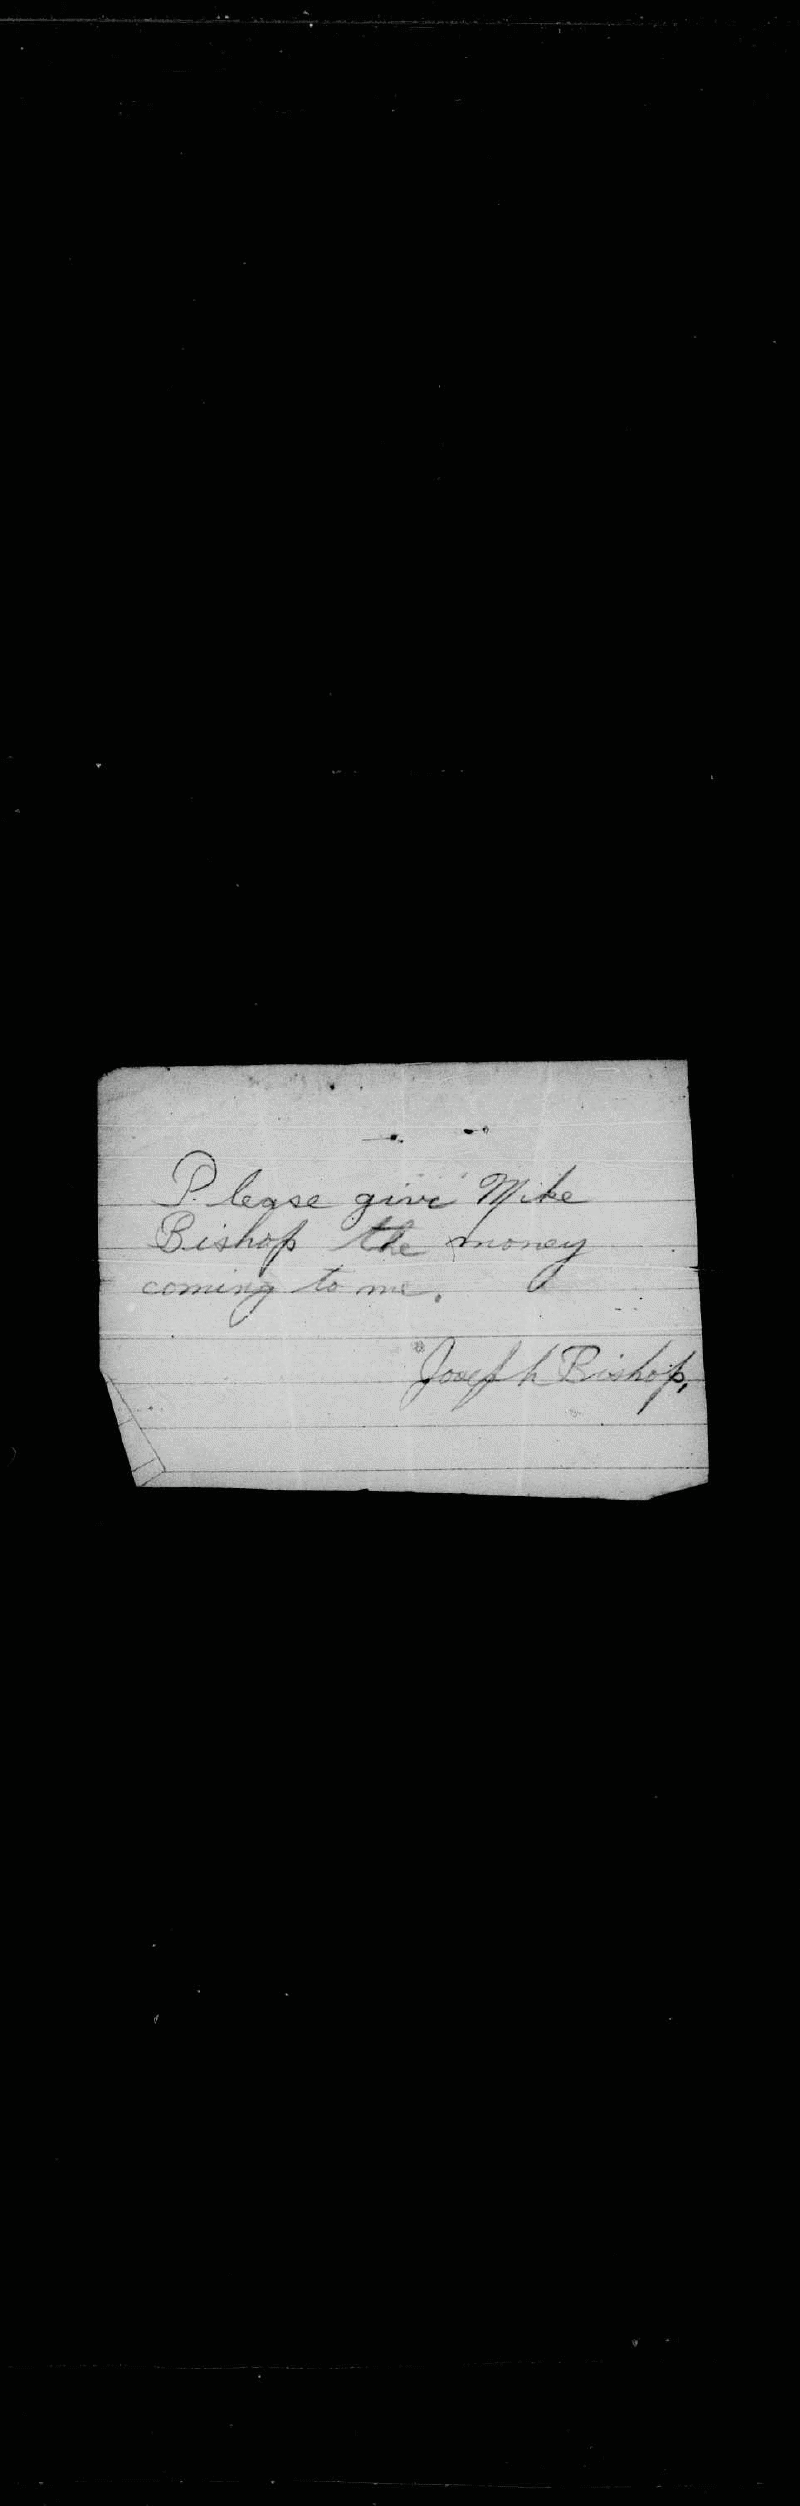 Please give Mike
Bishop the money
coming to me.
Joseph Bishop.